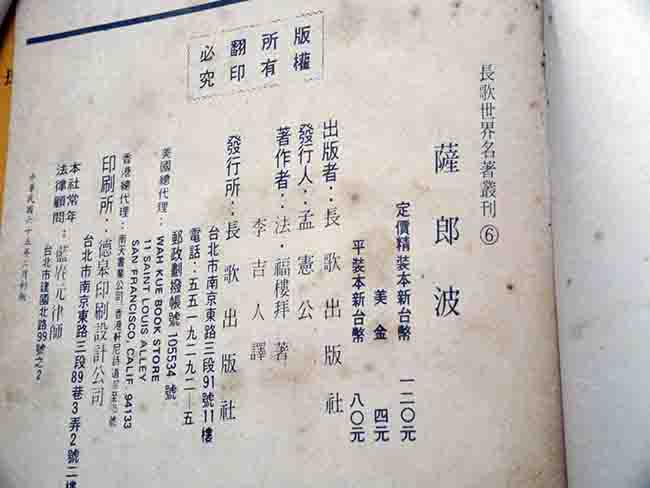 長歌世界名著叢刊⑥
薩郎波
定價精裝本新台幣 一二〇元
美金 四元
平裝本新台幣 八〇元
出版者：長歌出版社
發行人：孟憲公
著作者：法・福樓拜 著
李吉人 譯
發行所：長歌出版社
台北市南京東路三段91號11樓
電話：五五一九二九二—五
郵政劃撥帳號 105534 號
美國總代理：WAH KUE BOOK STORE
11 SAINT LOUIS ALLEY
SAN FRANCISCO, CALIF. 94133
香港總代理：南天書業公司 香港軒尼詩道
印刷所：德皋印刷設計公司
台北市南京東路三段89巷3弄2號二樓
本社常年法律顧問：藍瀛元律師
台北市建國北路99號之2
中華民國六十五年二月初版
版權所有
翻印必究